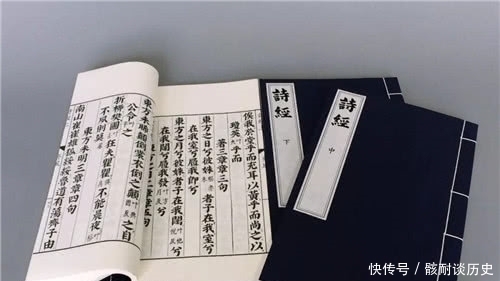 詩經
中
詩經
下
俟我於堂乎而充耳以黃乎而尚之以
瓊英乎而
著三章章三句
東方之日兮彼姝者子在我室兮
在我室兮履我即兮
東方之月兮彼姝者子在我闥兮
在我闥兮履我發兮
東方之日二章章五句
東方未晞顛倒裳衣倒之顛之自
公令之
折柳樊圃狂夫瞿瞿不能晨夜
不夙則莫
東方未明三章章四句
南山崔崔雄狐綏綏魯道有蕩齊子由
快传号/骸耐谈历史